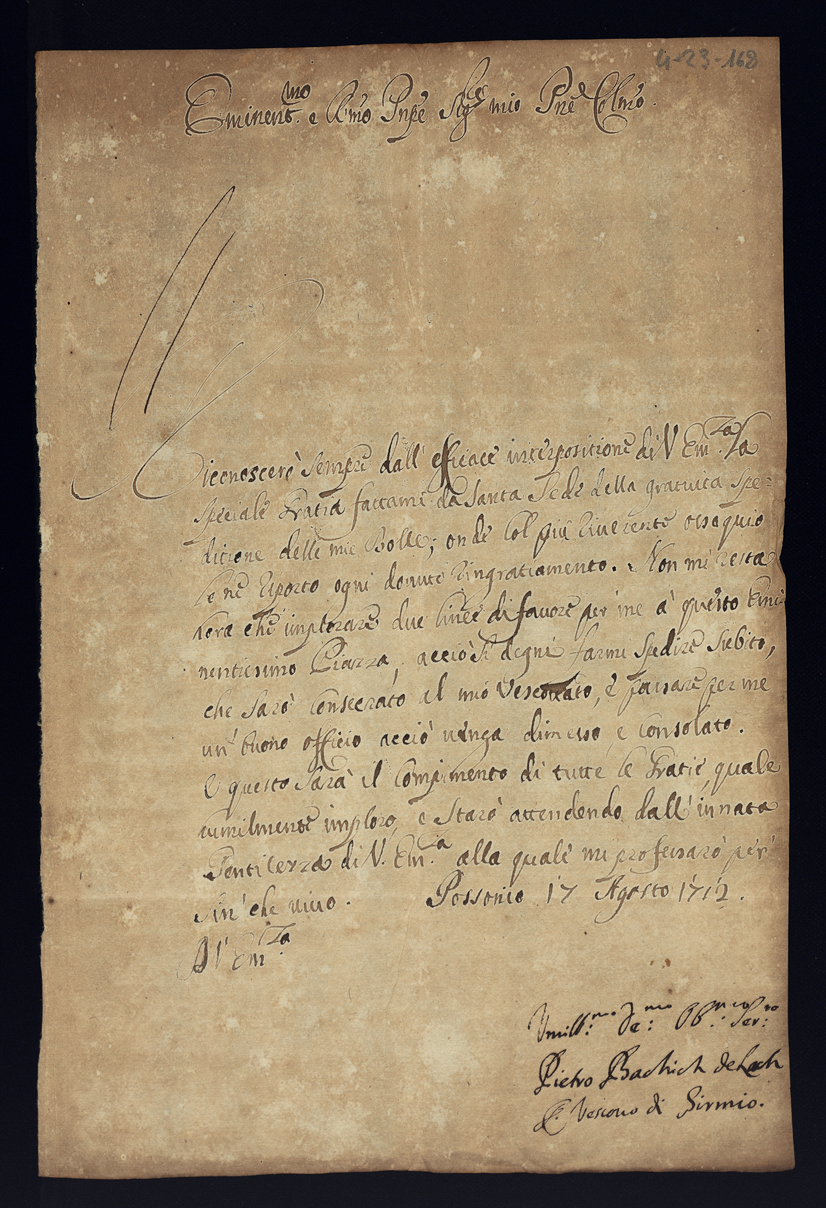 4-23-168
Eminent.mo e R.mo Pnpe Sig.re mio Pne Colmo.
Riconoscerò sempre dall' efficace interpositione di V Em.za la
speciale Gratia fattami da Santa Sede della gratuita spe-
ditione delle mie Bolle; onde col più riverente ossequio
le ne riporto ogni dovuto ringratiamento. Non mi resta
che implorare due linee di favore per me a questo Emi
nentissimo Piazza, acciò si degni farmi spedire subito,
che sarò consecrato al mio Vescovato, e passare per me
un' buono officio acciò venga dimesso, e consolato.
E questo sarà il compimento di tutte le Gratie, quale
umilmente imploro, e starò attendendo dall' innata
Gentilezza di V. Em.a alla quale mi professarò per
sin' che vivo. Possonio 17 Agosto 1712.
Di V Em.za
Umill.mo De.mo Obb.mo Ser.re
Pietro Bachich de Lach
Vescovo di Sirmio.